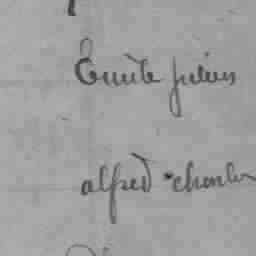 Emile Julien
alfred Charles